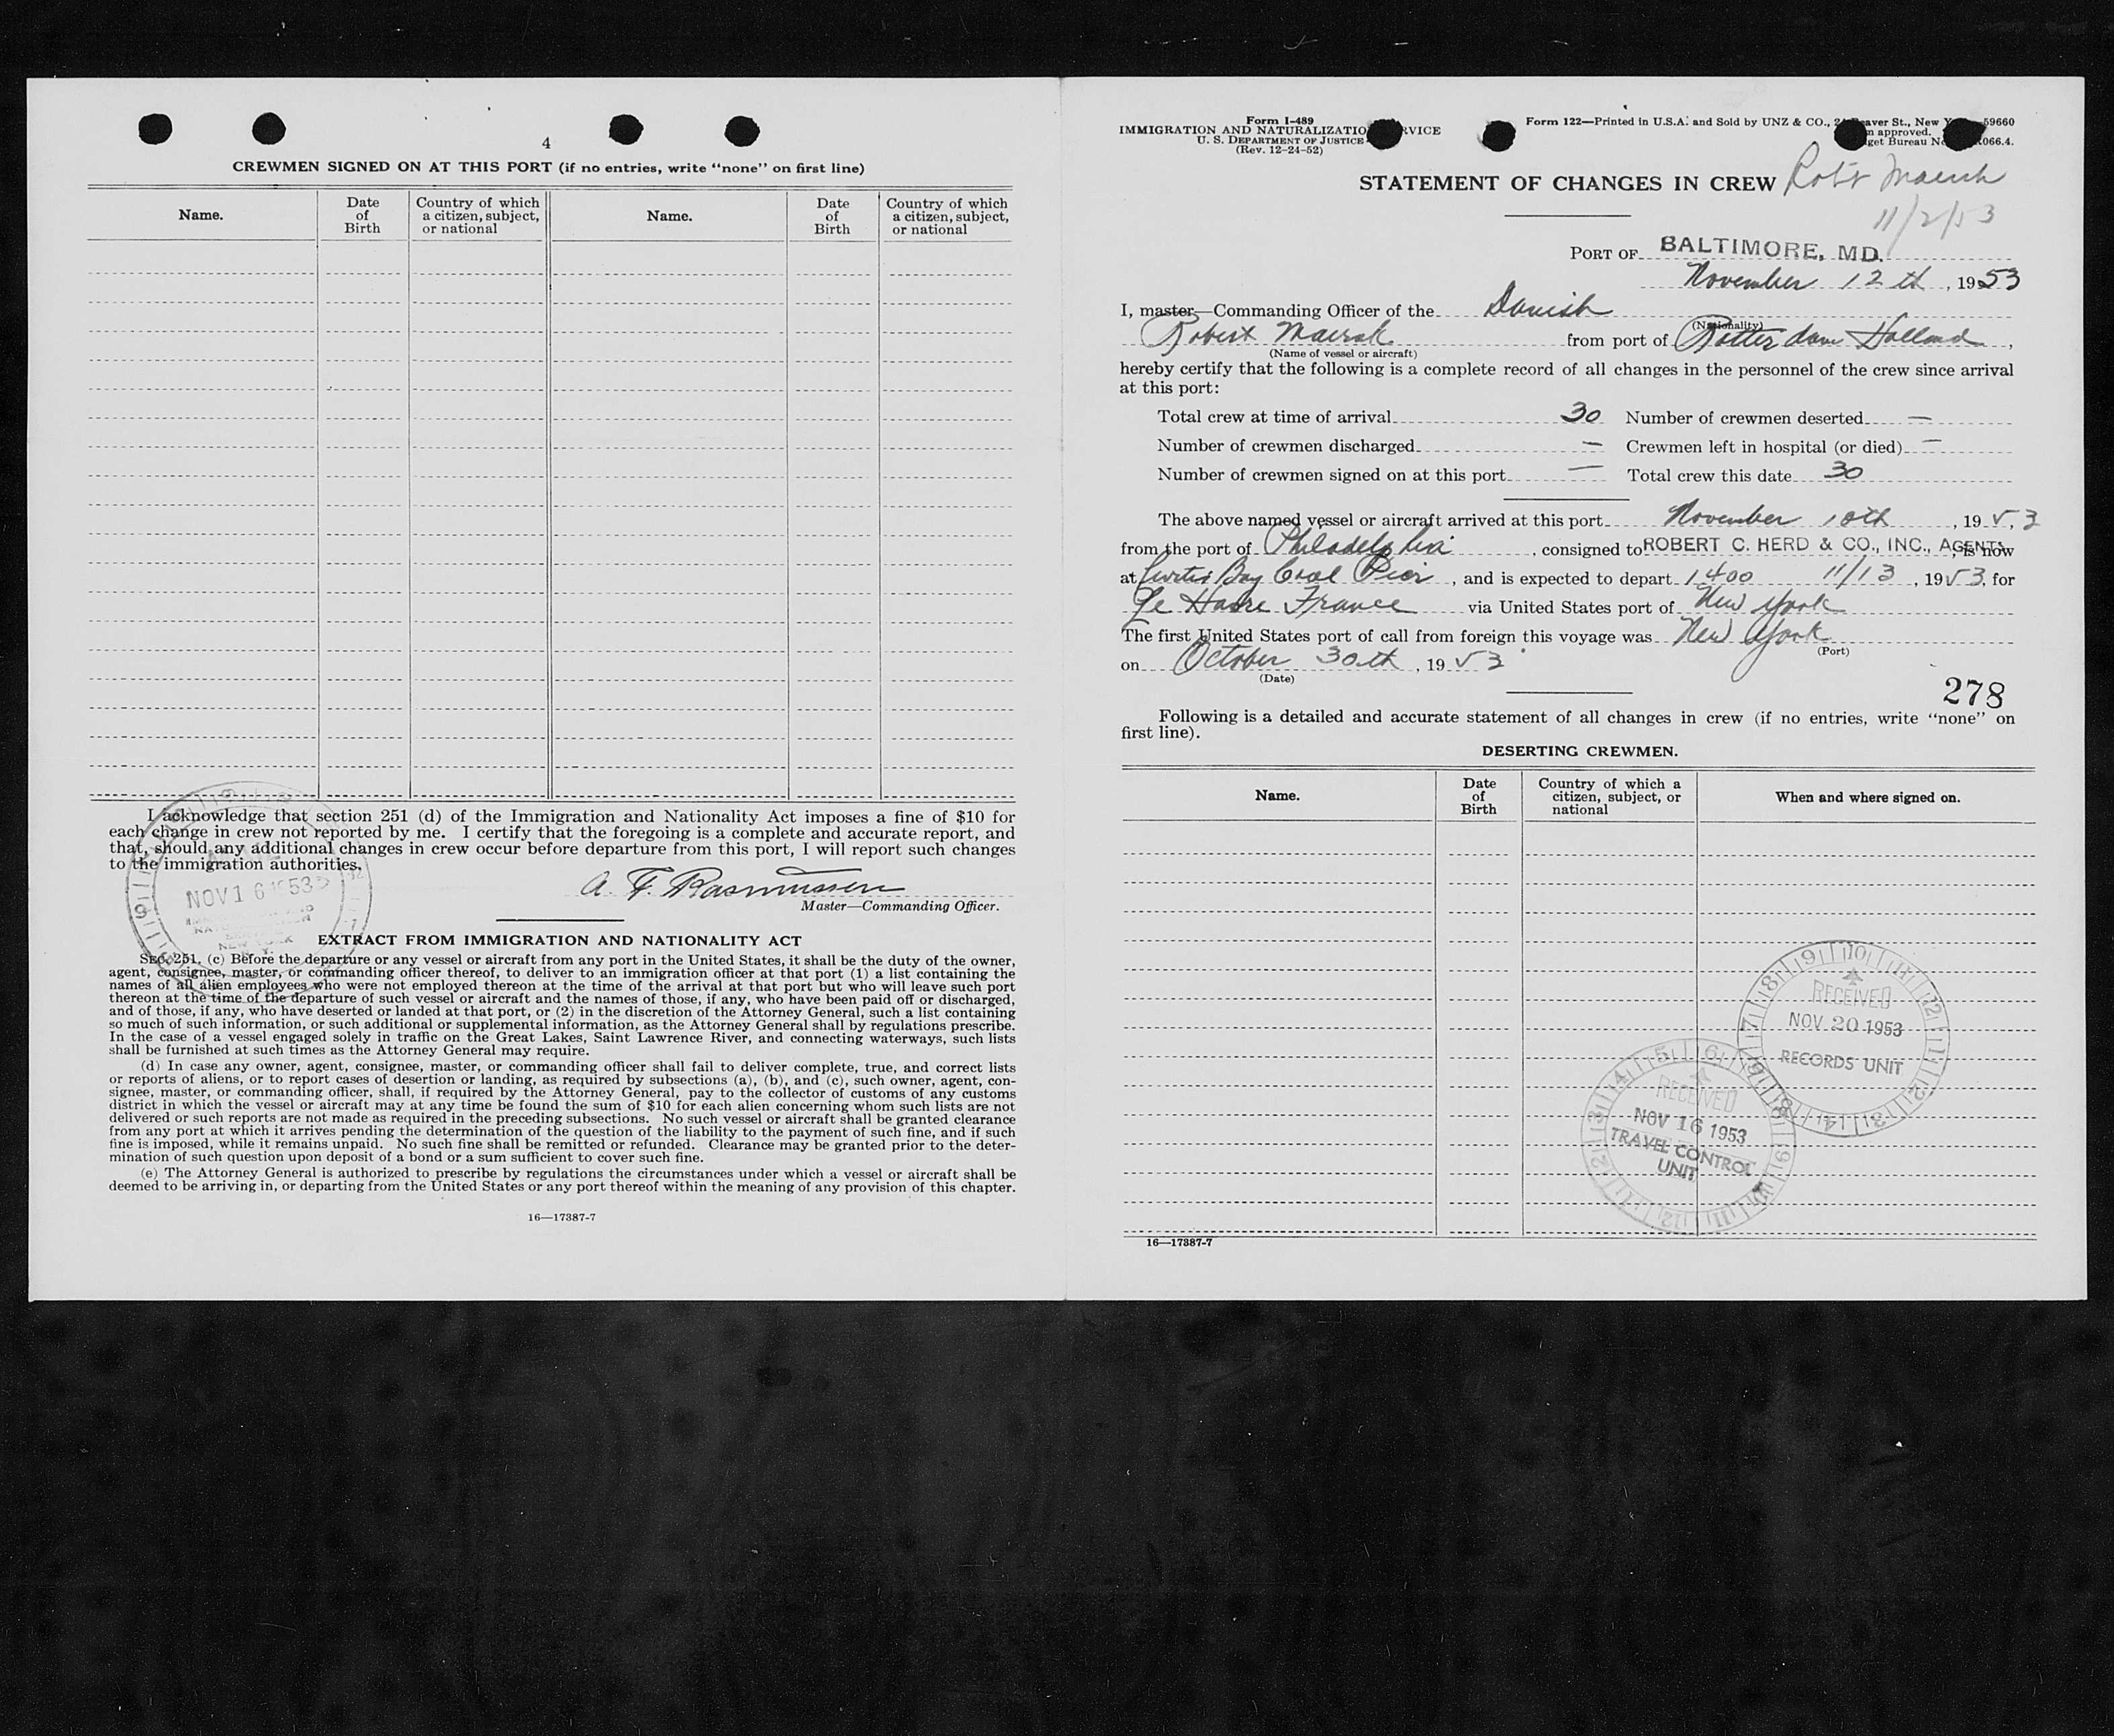 4
CREWMEN SIGNED ON AT THIS PORT (if no entries, write "none" on first line)
Name.
Date of Birth
Country of which a citizen, subject, or national
Name.
Date of Birth
Country of which a citizen, subject, or national
I acknowledge that section 251 (d) of the Immigration and Nationality Act imposes a fine of $10 for
each change in crew not reported by me. I certify that the foregoing is a complete and accurate report, and
that, should any additional changes in crew occur before departure from this port, I will report such changes
to the immigration authorities.
NOV 16 1953
A. F. Rasmussen
Master—Commanding Officer.
EXTRACT FROM IMMIGRATION AND NATIONALITY ACT
SEC. 251. (c) Before the departure or any vessel or aircraft from any port in the United States, it shall be the duty of the owner,
agent, consignee, master, or commanding officer thereof, to deliver to an immigration officer at that port (1) a list containing the
names of all alien employees who were not employed thereon at the time of the arrival at that port but who will leave such port
thereon at the time of the departure of such vessel or aircraft and the names of those, if any, who have been paid off or discharged,
and of those, if any, who have deserted or landed at that port, or (2) in the discretion of the Attorney General, such a list containing
so much of such information, or such additional or supplemental information, as the Attorney General shall by regulations prescribe.
In the case of a vessel engaged solely in traffic on the Great Lakes, Saint Lawrence River, and connecting waterways, such lists
shall be furnished at such times as the Attorney General may require.
(d) In case any owner, agent, consignee, master, or commanding officer shall fail to deliver complete, true, and correct lists
or reports of aliens, or to report cases of desertion or landing, as required by subsections (a), (b), and (c), such owner, agent, con-
signee, master, or commanding officer, shall, if required by the Attorney General, pay to the collector of customs of any customs
district in which the vessel or aircraft may at any time be found the sum of $10 for each alien concerning whom such lists are not
delivered or such reports are not made as required in the preceding subsections. No such vessel or aircraft shall be granted clearance
from any port at which it arrives pending the determination of the question of the liability to the payment of such fine, and if such
fine is imposed, while it remains unpaid. No such fine shall be remitted or refunded. Clearance may be granted prior to the deter-
mination of such question upon deposit of a bond or a sum sufficient to cover such fine.
(e) The Attorney General is authorized to prescribe by regulations the circumstances under which a vessel or aircraft shall be
deemed to be arriving in, or departing from the United States or any port thereof within the meaning of any provision of this chapter.
16—17387-7
Form I-489
IMMIGRATION AND NATURALIZATIO RVICE
U. S. DEPARTMENT OF JUSTICE
(Rev. 12-24-52)
Form 122—Printed in U.S.A. and Sold by UNZ & CO., 2 eaver St., New Y 59660
approved.
get Bureau N 066.4.
STATEMENT OF CHANGES IN CREW Robt Maersk
11/2/53
PORT OF BALTIMORE, MD.
November 12th, 1953
I, master—Commanding Officer of the Danish
(Nationality)
Robert Maersk from port of Rotterdam Holland,
(Name of vessel or aircraft)
hereby certify that the following is a complete record of all changes in the personnel of the crew since arrival
at this port:
Total crew at time of arrival 30 Number of crewmen deserted —
Number of crewmen discharged — Crewmen left in hospital (or died) —
Number of crewmen signed on at this port — Total crew this date 30
The above named vessel or aircraft arrived at this port November 10th, 1953
from the port of Philadelphia, consigned to ROBERT C. HERD & CO., INC., AGENTS, is now
at Curtis Bay Coal Pier, and is expected to depart 1400 11/13, 1953, for
Le Havre France via United States port of New York
The first United States port of call from foreign this voyage was New York
(Port)
on October 30th, 1953
(Date)
278
Following is a detailed and accurate statement of all changes in crew (if no entries, write "none" on
first line).
DESERTING CREWMEN.
Name.
Date of Birth
Country of which a citizen, subject, or national
When and where signed on.
RECEIVED
NOV 20 1953
RECORDS UNIT
RECEIVED
NOV 16 1953
TRAVEL CONTROL
UNIT
16—17387-7